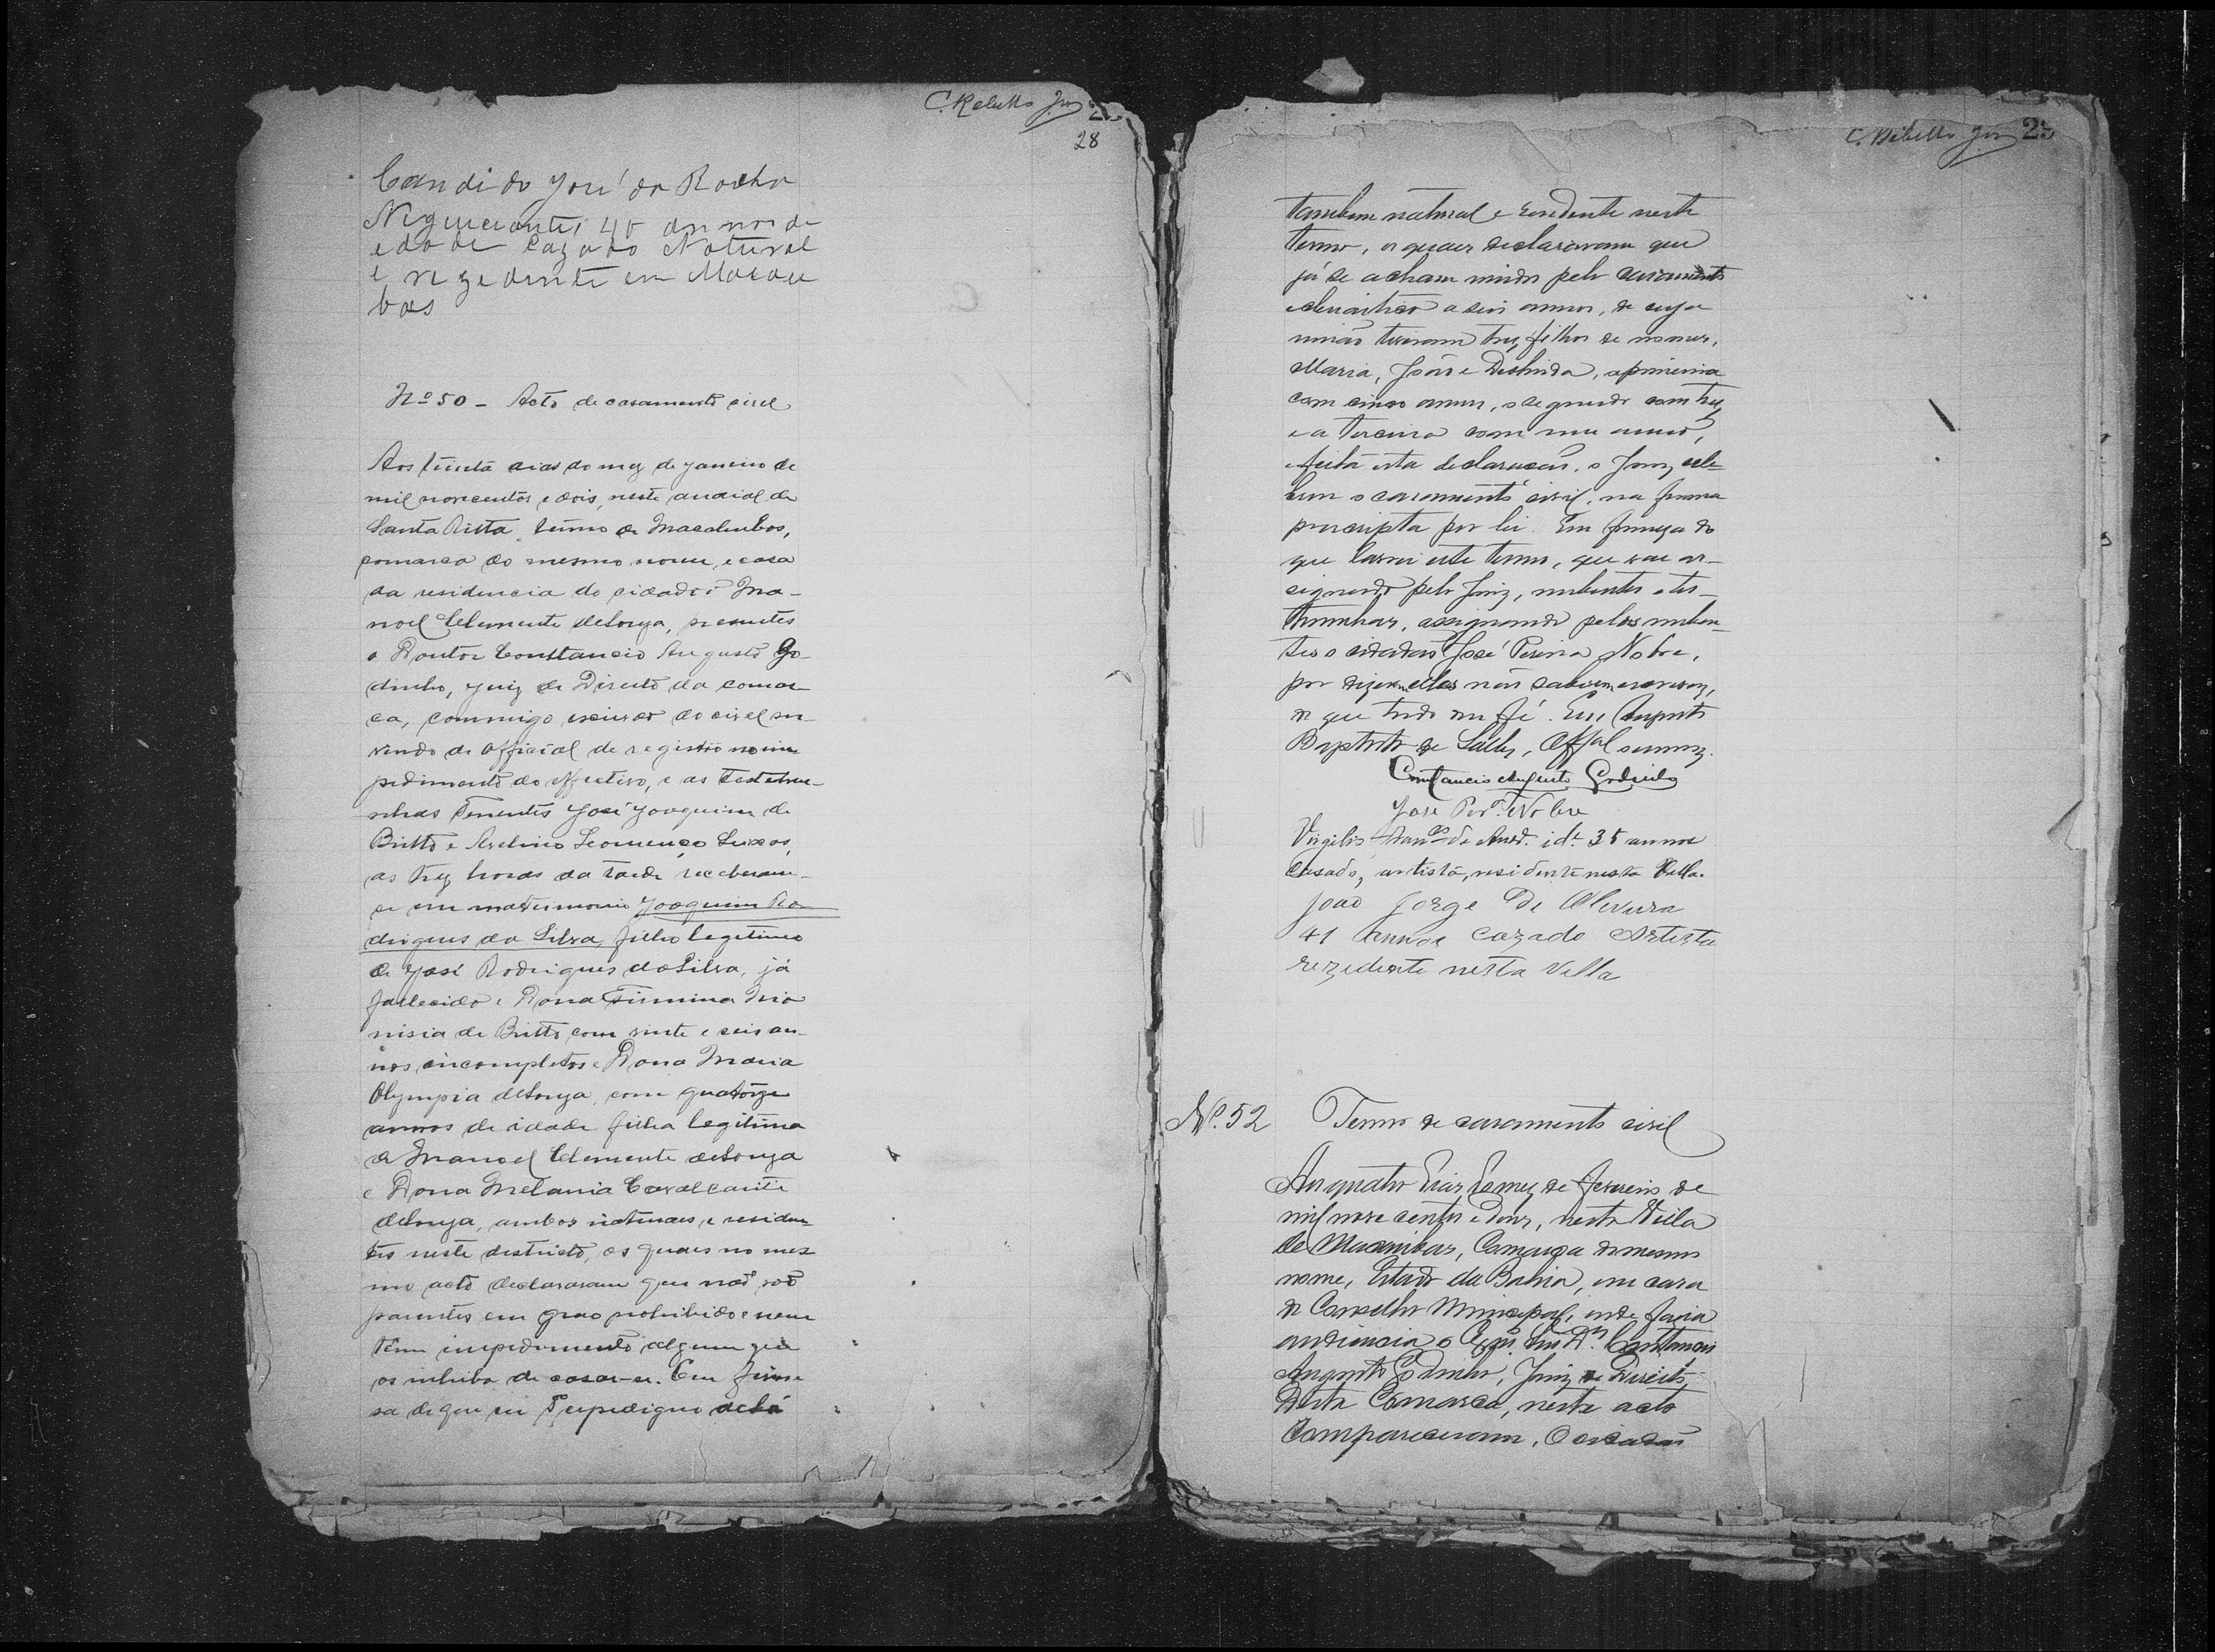 C. Rebello Jor
28
Candido José da Rocha
Neguciante, 40 annos de
edade Cazado Natural
e rezedente em Macau
bas
Nº 50 - Acto de casamento civel
Aos trinta dias do mez de Janeiro de
mil novecentos e dois, neste arraial de
Santa Ritta, termo de Macahubas,
comarca do mesmo nome, e casa
da residencia do cidadão Ma-
noel Clemente deSouza, presentes
o Doutor Constancio Augusto Go-
dinho, Juiz de Direito da comar-
ca, commigo escrivão do civel ser-
vindo de official de registro no im-
pedimento do effectivo, e as testemu-
nhas Tenentes José Joaquim de
Britto e Avelino Lourenço Seixas,
as trez horas da tarde receberam-
se em matrimonio Joaquim Ro-
drigues da Silva, filho legitimo
de José Rodrigues daSilva, já
fallecido e Dona Firmina Dio
nisia de Britto, com vinte e seis an-
nos incompletos e Dona Maria
Olympia deSouza, com quatorze
annos de idade filha legitima
de Manoel Clemente deSouza
e Dona Melania Cavalcante
deSouza, ambos naturaes e residen-
tes neste districto, os quaes no mes
mo acto declararam que não são
parentes em grao prohibido e nem
têm impedimento algum que
os inhiba de casar-se. Em firme
sa de que eu
C. Rebello Jor 29
tambem natural e residente neste
termo, os quaes declararam que
já se acham unidos pelo casamento
eclesiastico a seis annos, de cuja
união tiveram trez filhos de nomes,
Maria, João e Deolinda, a primeira
com cinco annos, o segundo com trez
e a terceira com um anno,
e feita esta declaração, o Juiz cele-
brou o casamento civil, na forma
prescripta por lei. Em firmeza do
que lavrei este termo, que vae as-
signado pelo Juiz, nubentes e tes-
temunhas, assignando pelos nuben-
tes o cidadão José Pereira Nobre,
por dizerem elles não saberem escrever,
do que tudo dou fé. Eu, Augusto
Baptista de Salles, Offal. escrevez.
Constancio Augusto Godinho
José Per.ª Nobre
Virgilio de id.e 35 annos
Casado, artista, residente nesta Villa.
João Jorge De Oliveira
41 annos cazado Artista
rezedente nesta Villa
Nº. 52 Termo de casamento civil
Aos quatro dias do mez de Fevereiro de
mil nove centos e dous, nesta Villa
de Macaubas, Comarca do mesmo
nome, Estado da Bahia, em casa
do Conselho Municipal, onde fazia
audiencia o Dr. Constancio
Augusto Godinho, Juiz de Direito
desta Comarca, neste acto
Compareceram, O cidadão